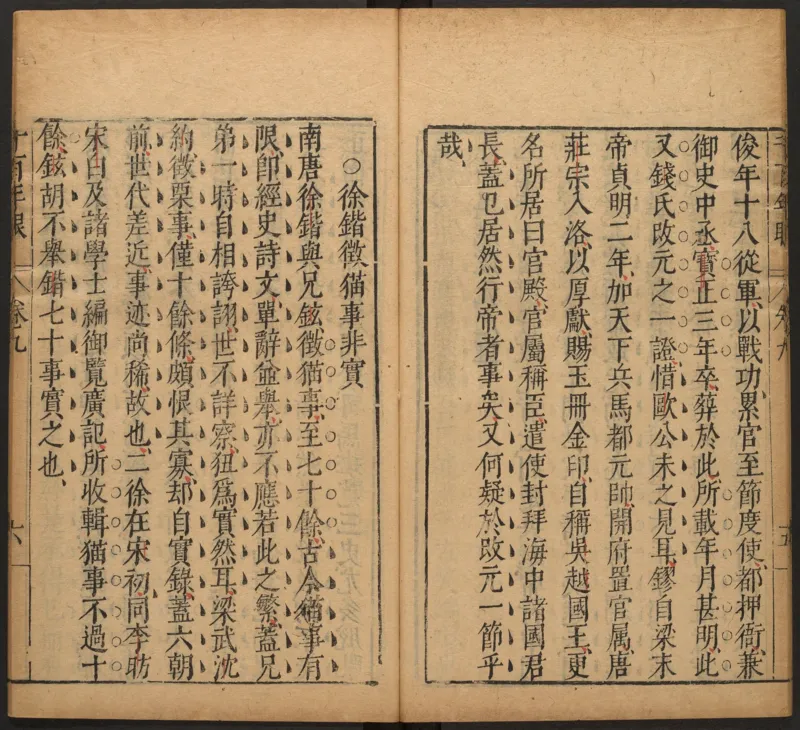 俊年十八從軍、以戰功、累官至節度使、都押衙、兼
御史中丞、寶正三年卒、葬於此、所載年月甚明、此
又錢氏改元之一證、惜歐公未之見耳、鏐自梁末
帝貞明二年、加天下兵馬都元帥、開府置官属、唐
莊宗入洛、以厚獻賜玉冊金印、自稱吳越國王、更
名所居曰宮殿、官屬稱臣、遣使封拜海中諸國君
長、蓋已居然行帝者事矣、又何疑於改元一節乎
哉、
○徐鍇徵猫事非實
南唐徐鍇與兄鉉、徵猫事、至七十餘、古今猫事有
限、即經史詩文、單辭並舉、亦不應若此之繁、蓋兄
弟一時自相誇詡、世不詳察、狃爲實然耳、梁武沈
約徵栗事、僅十餘條、頗恨其寡、却自實錄、蓋六朝
前世代差近、事迹尚稀故也、二徐在宋初、同李昉
宋白及諸學士編御覽廣記、所收輯猫事不過十
餘、鉉胡不舉鍇七十事實之也、
千百年眼
卷九
六